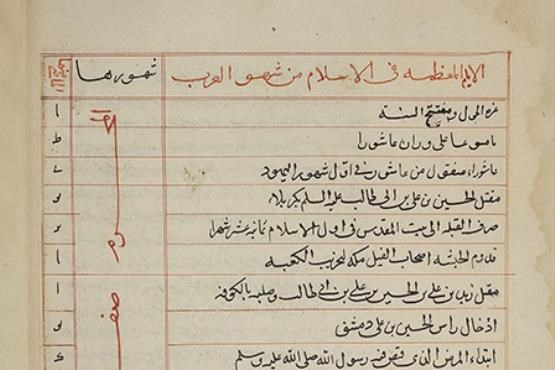 الايام المعظمه فى الاسلام من شهور العرب شهورها
غره الحول ومفتتح السنه ا
تاسوعا على وزان عاشورا ط
عاشوراء منقول من عاشور فى اول شهور اليهود ى
مقتل الحسين بن على بن ابى طالب عليه السلم بكربلاء
صرف القبله الى بيت المقدس فى اول الاسلام ثمانيه عشر شهرا
قدوم الحبشه اصحاب الفيل مكه لتخريب الكعبه
مقتل زيد بن على بن الحسين بن على بن ابى طالب وصلبه بالكوفه ا
ادخال راس الحسين بن على دمشق
ابتداء المرض الذى قبض فيه رسول الله صلى الله عليه وسلم
المحرم
صفر